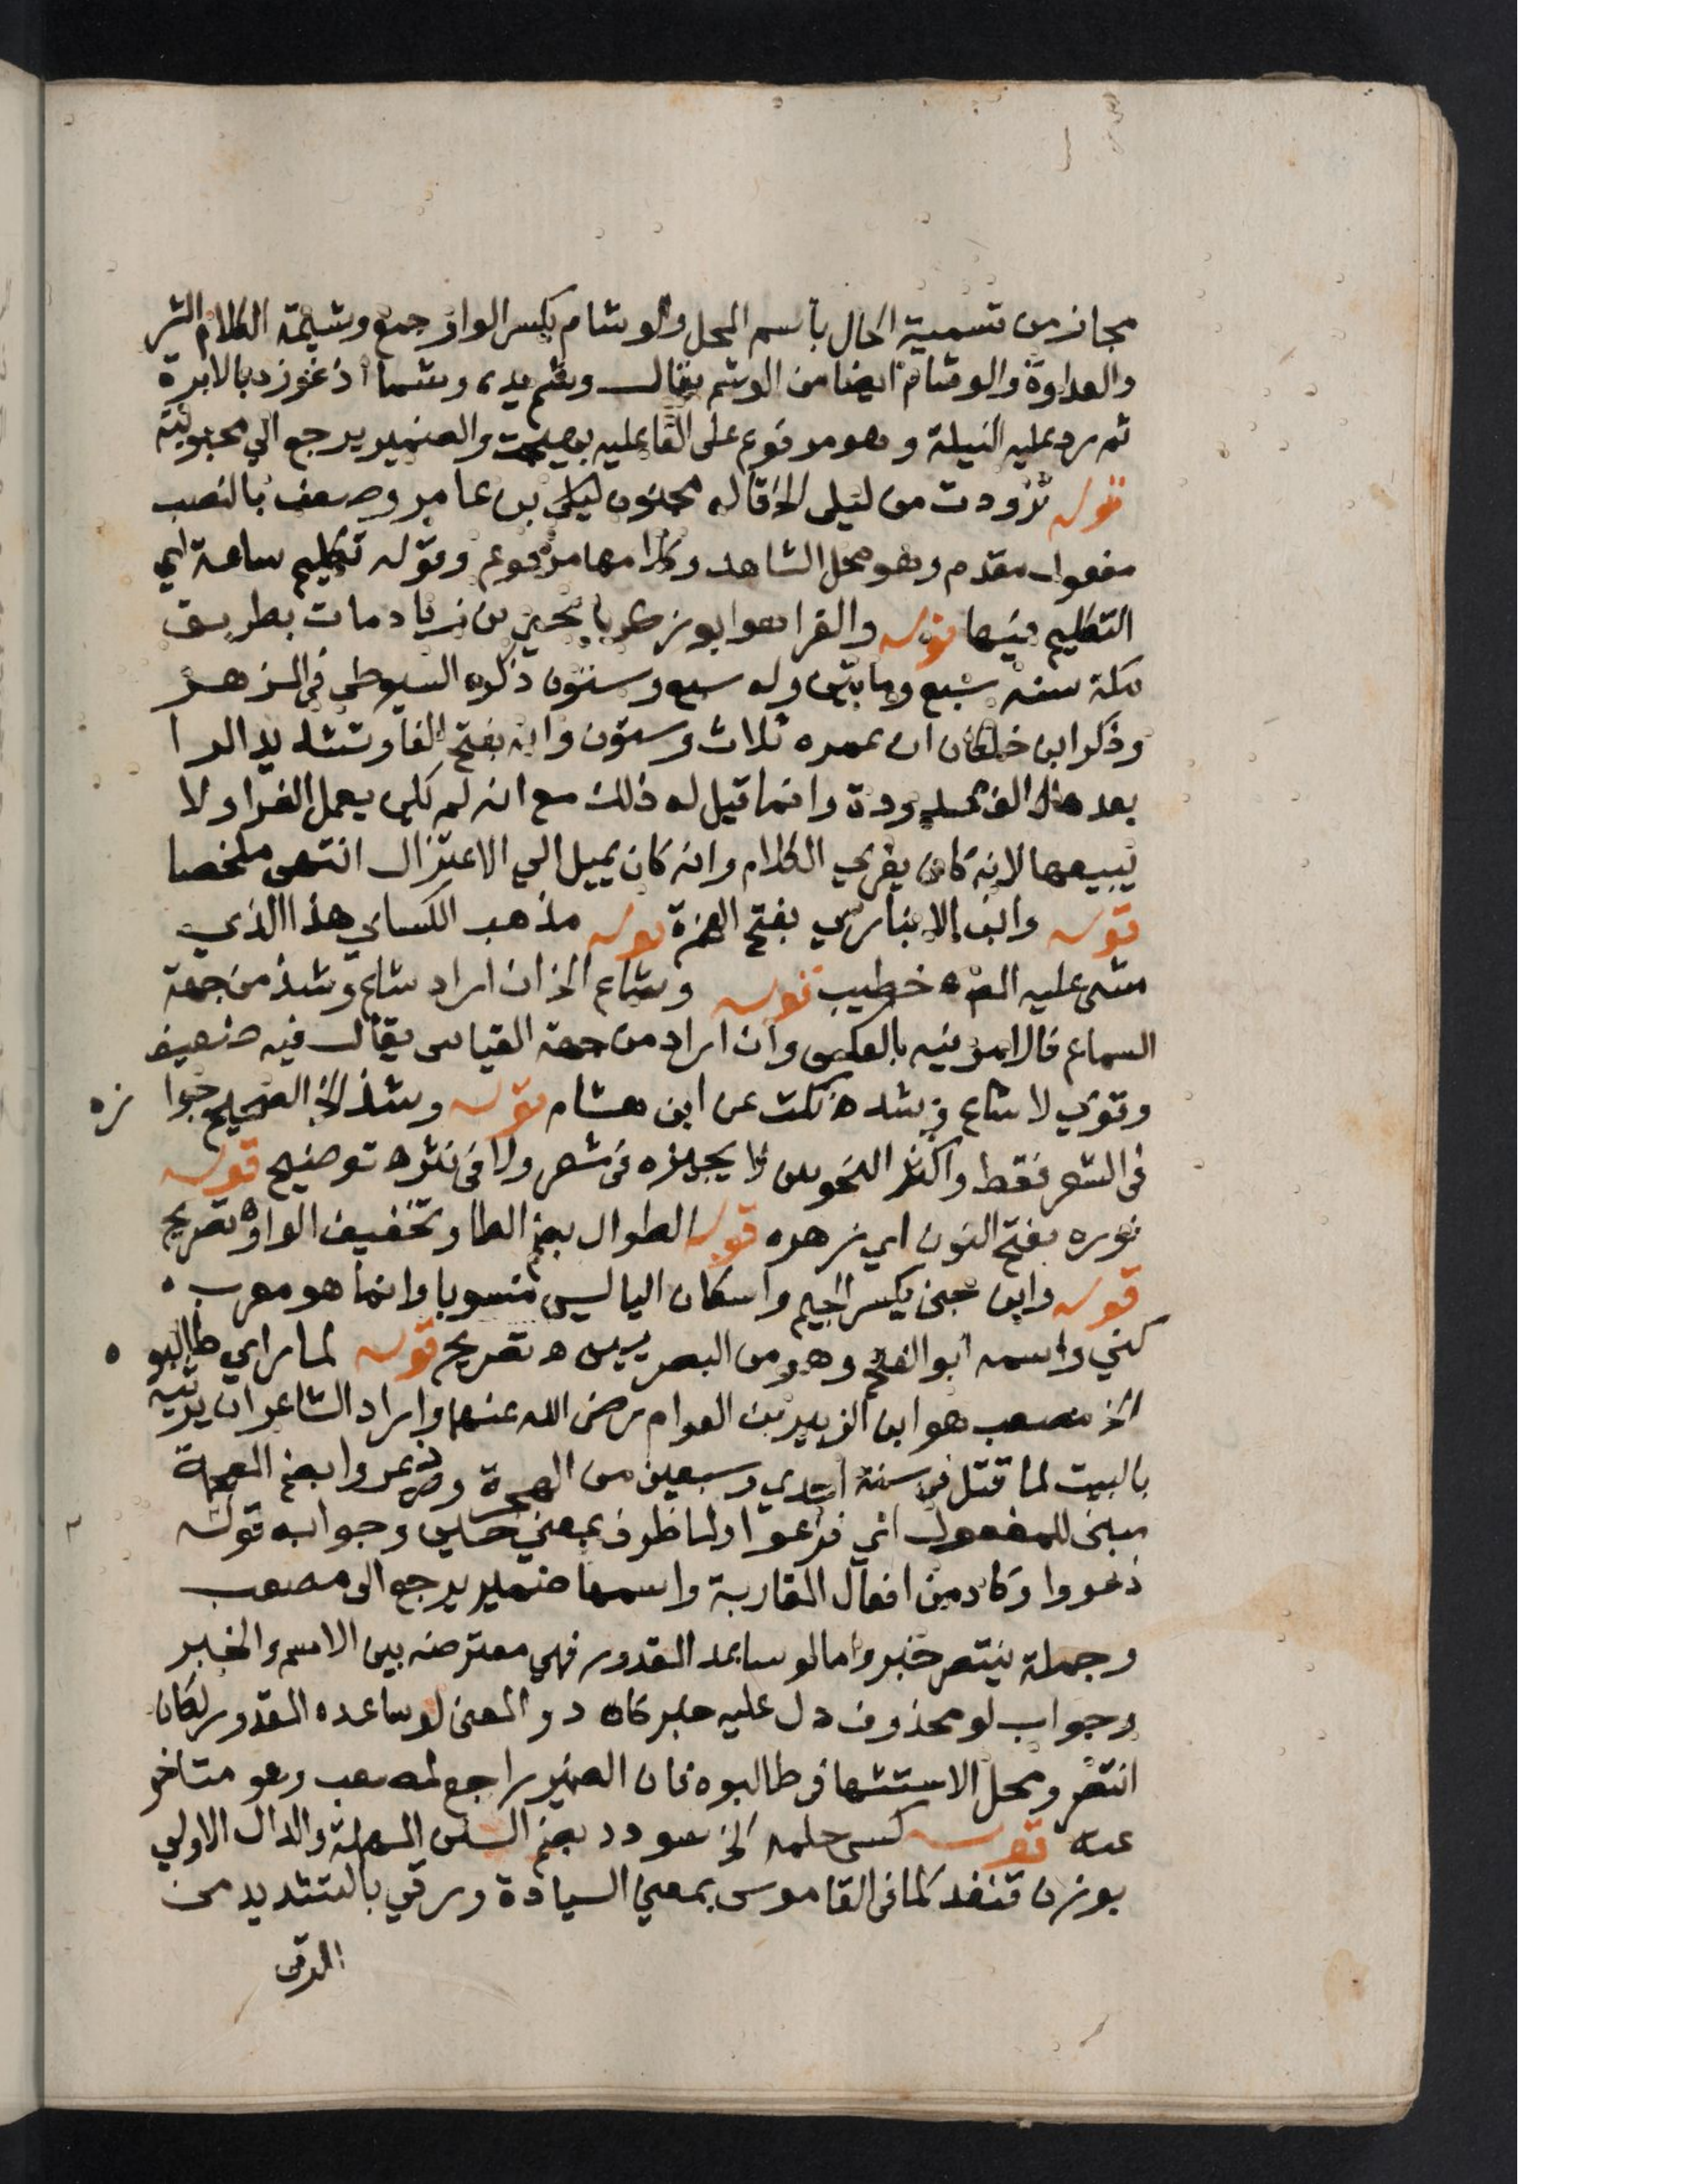 مجاز من تسمية الحال باسم المحل والوشام بكسر الواو جمع وشيمة الكلام الشر
والعداوة والوشام ايضا من الوشم يقال وشم يده وشما اذ غوزد بالابرة
ثم رد عليه النيلة وهو مرفوع على الفاعليه بهيجت والضمير يرجع الي محبوبيته
قوله تزودت من ليلى الخ قاله مجنون ليلى بن عامر وضعف بالنصب
مفعول مقدم وهو محل الشاهد وكلامها مرفوع وقوله تكليم ساعة اي
التكليم فيها قوله والفرا هو ابو زكريا يحيى بن زياد مات بطريق
مكة سنه سبع ومايتين وله سبع وستون ذكره السيوطي فى المزهر
وذكر ابن خلكان ان عمره ثلاث وستون وانه بفتح الفا وتشديد الرا
بعدها الف ممدودة وانما قيل له ذلك مع انه لم يكن يعمل الفرا ولا
يبيعها لانه كان يفري الكلام وانه كان يميل الي الاعتزال انتهى ملخصا
قوله وابن الانباري بفتح الهمزة قوله مذهب الكساي هذا الذي
مشى عليه المص ه خطيب قوله وشاع الخ ان اراد شاع وشذ من جهة
السماع فالامر فيه بالعكس وان اراد من جهة القياس يقال فيه ضعيف
وقوي لا شاع وشذ ه نكت عن ابن هشام قوله وشذ الخ الصحيح جوا زه
فى الشعر فقط واكثر النحويين لا يجيزه فى شعر ولا فى نثر ه توضيح قوله
نوره بفتح النون اي زهره قوله الطوال بضم الطا وتخفيف الواو ه تصريح
قوله وابن جنى بكسر الجيم واسكان اليا ليس منسوبا وانما هو معرب
كني واسمه ابو الفتح وهو من البصريين ه تصريح قوله لما راي طالبو ه
الخ مصعب هو ابن الزبير بن العوام رضى الله عنهما واراد الشاعر ان يرثيه
بالبيت لما قتل فى سنة احدي وسبعين من الهجرة وذعروا بضم المعجمة
مبنى للمفعول اي فزعوا ولما ظرف بمعني حين وجوابه قوله
ذعروا وكاد من افعال المقاربة واسمها ضمير يرجع الى مصعب
وجملة ينتصر خبر واما لو ساعد المقدور فهي معترضه بين الاسم والخبر
وجواب لو محذوف دل عليه خبر كاد والمعنى لو ساعده المقدور لكان
انتصر ومحل الاستشهاد طالبوه فان الضمير راجع لمصعب وهو متاخر
عنه قوله كسى حلمه الخ سودد بضم السين المهملة والدال الاولي
بوزن قنفد كما فى القاموس بمعني السيادة ورقي بالتشديد من
الرقى